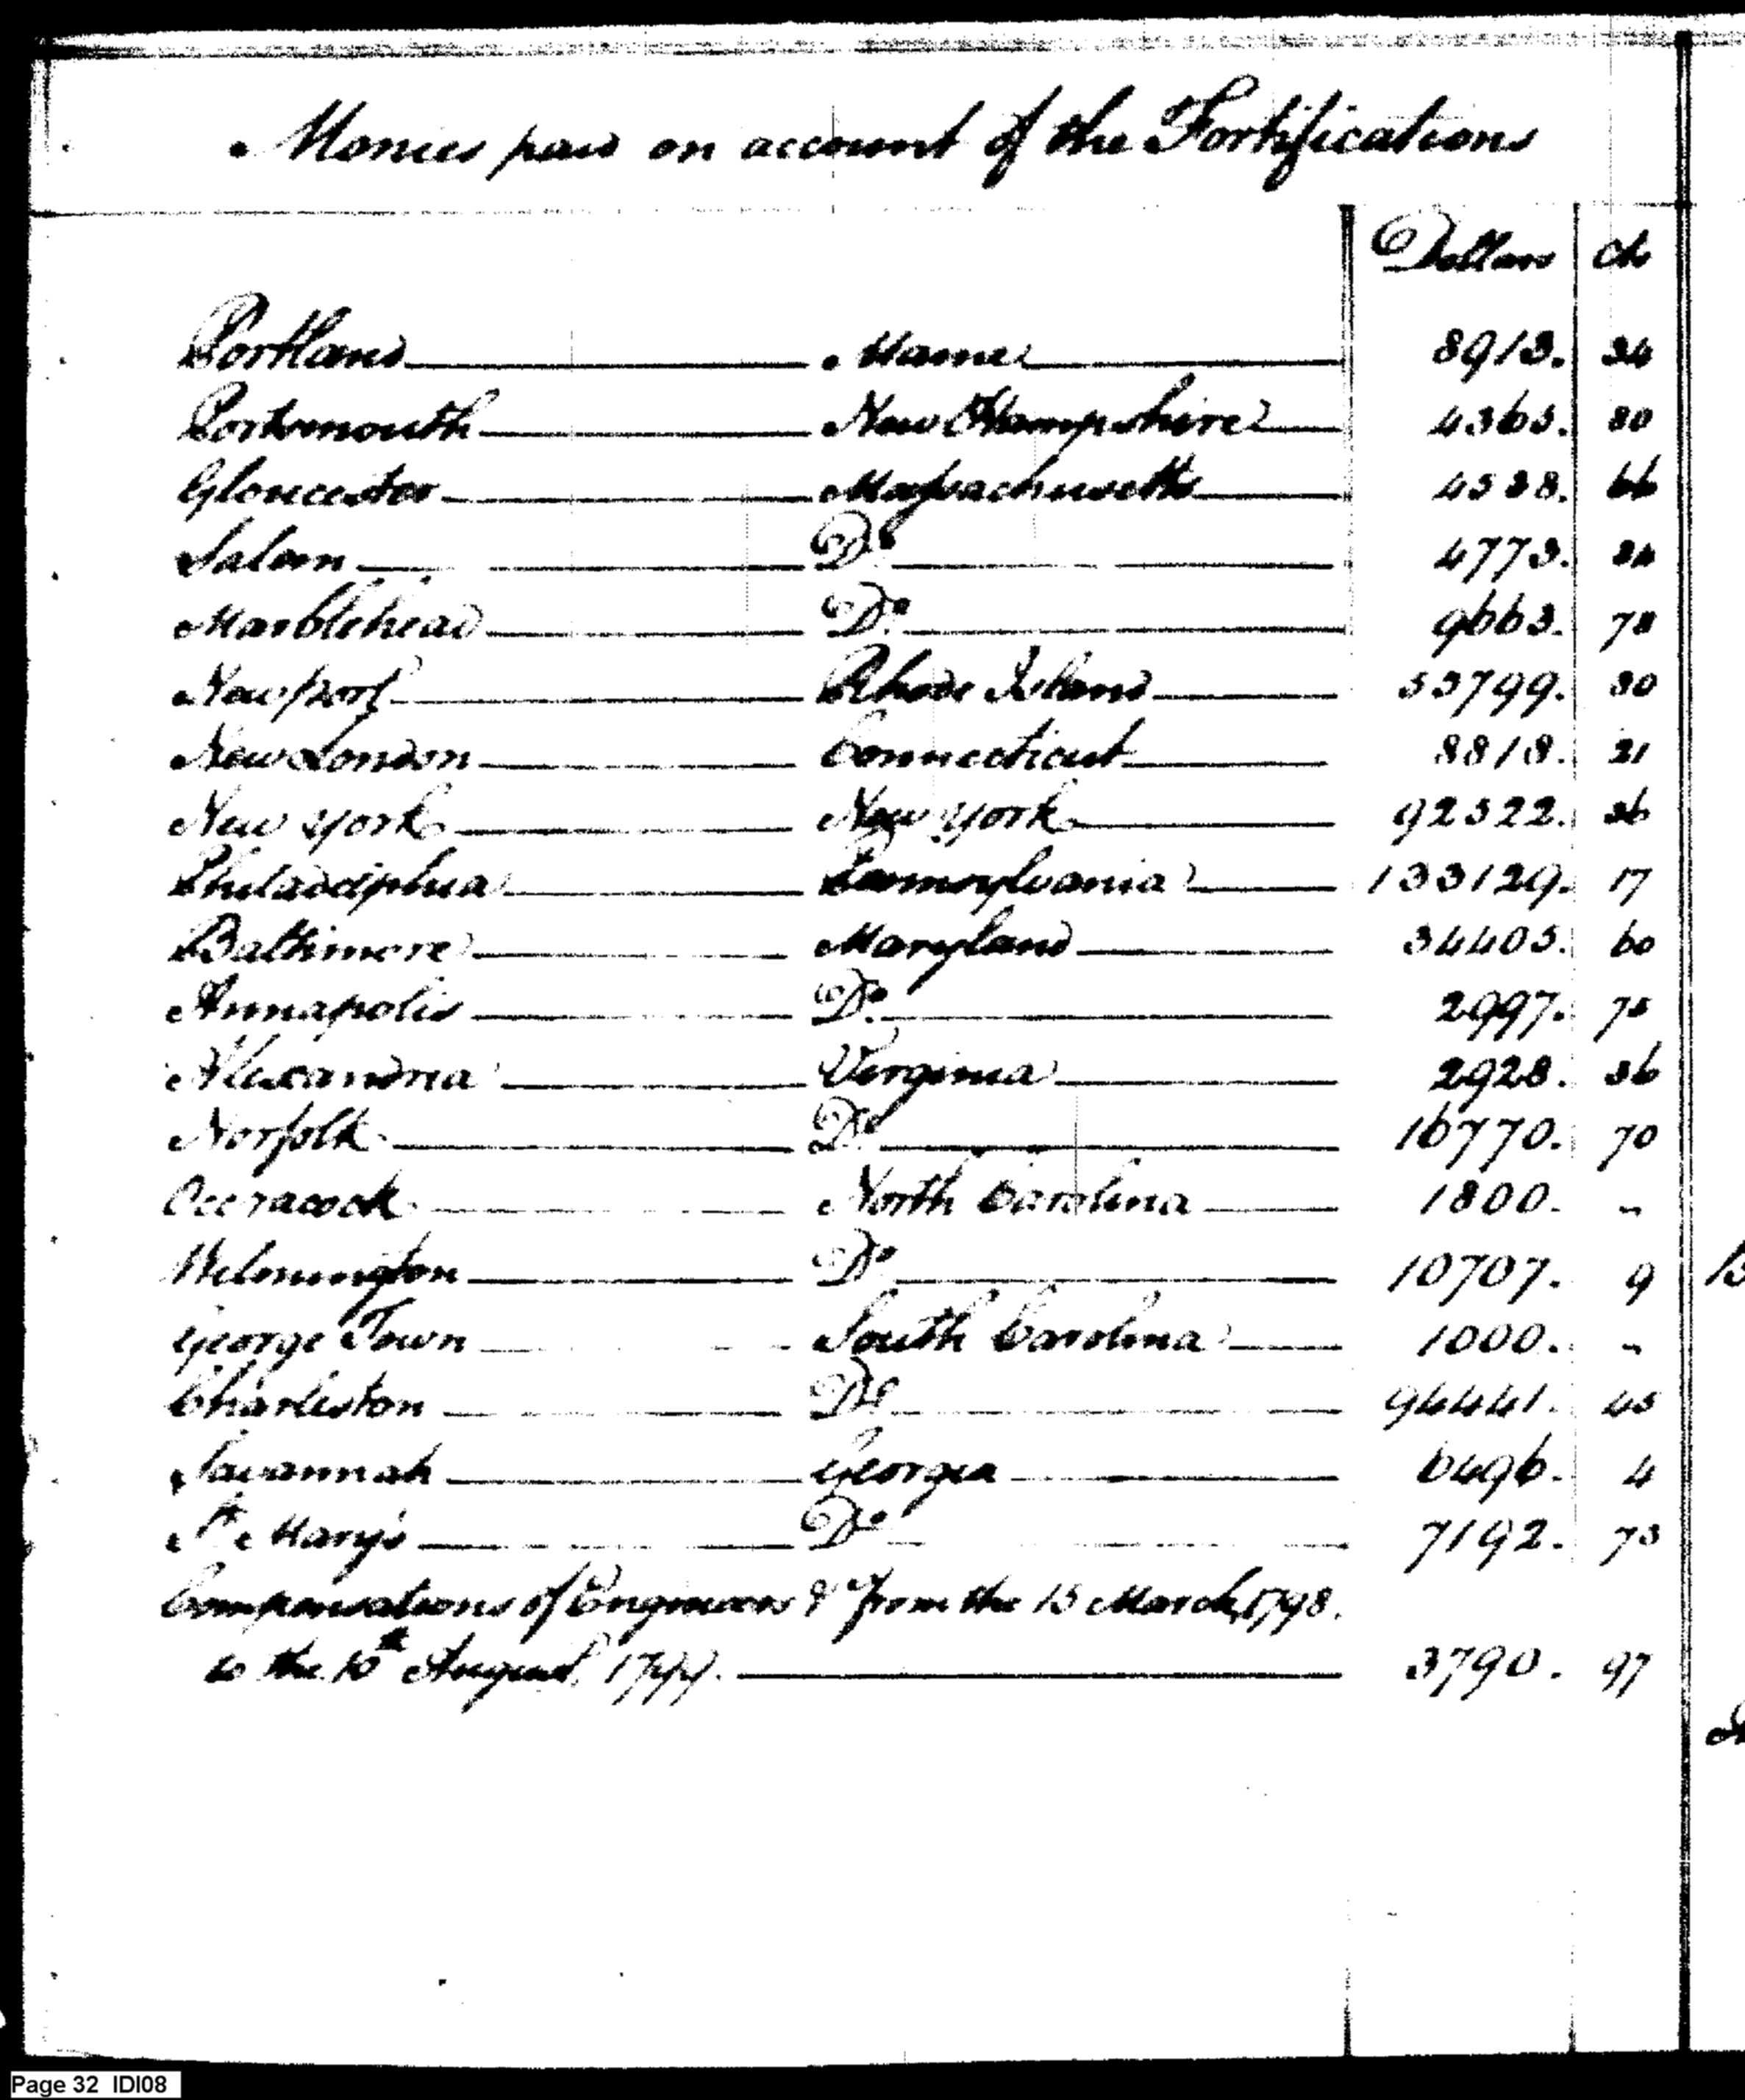 Monies paid on account of the Fortifications
Dollars cts
Portland Maine 8913. 34
Portsmouth New Hampshire 4365. 80
Gloucester Massachusetts 4538. 66
Salem Do 4773. 34
Marblehead Do 9663. 78
Newport Rhode Island 53799. 30
New London Connecticut 8818. 21
New York New York 92522. 36
Philadelphia Pennsylvania 133129. 17
Baltimore Maryland 34405. 60
Annapolis Do 2997. 75
Alexandria Virginia 2928. 36
Norfolk Do 16770. 70
Occracock North Carolina 1800. -
Wilmington Do 10707. 9
George Town South Carolina 1000. -
Charleston Do 94441. 45
Savannah Georgia 6496. 4
St Mary's Do 7192. 73
Compensations of Engineers &c from the 15 March, 1798.
to the 10th August, 1799. 3790. 97
Page 32 IDI08